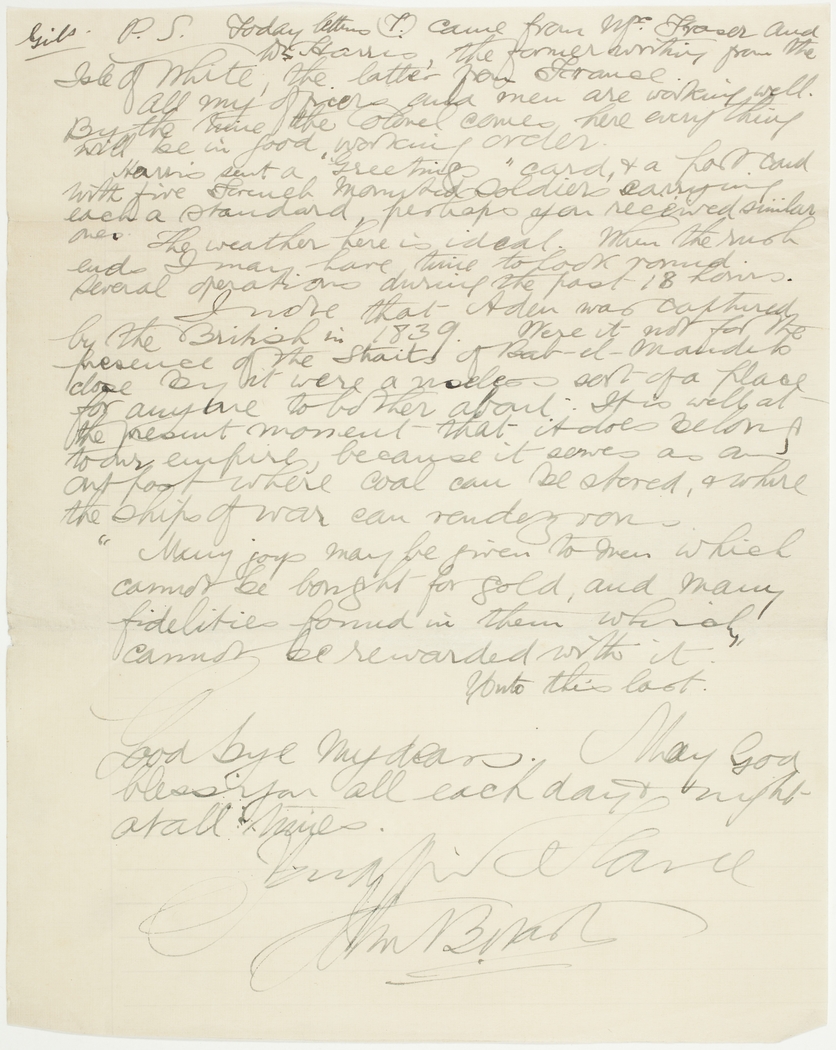 Gils. P. S. Today letters (2) came from Mr. Fraser and
Wm Harris, the former writing from the
Isle of White, the latter from France.
All my officers and men are working well.
By the time the Colonel comes here everything
will be in good working order.
Harris sent a "Greetings" card, & a post card
with five French Mounted Soldiers carrying
each a standard, perhaps you received similar
ones. The weather here is ideal. When the rush
ends I may have time to look round.
Several operations during the past 18 hours.
I note that Aden was captured
by the British in 1839. Were it not for the
presence of the Straits of Bab-el-Mandeb
close by it were a useless sort of a place
for anyone to bother about. It is well at
the present moment that it does belong
to our empire, because it serves as an
outpost where coal can be stored, & where
the ships of war can rendezvous.
" Many joys may be given to men which
cannot be bought for gold, and many
fidelities found in them which
cannot be rewarded with it."
Unto this last.
Good bye my dears. May God
bless you all each day & night
at all times.
Jno B.